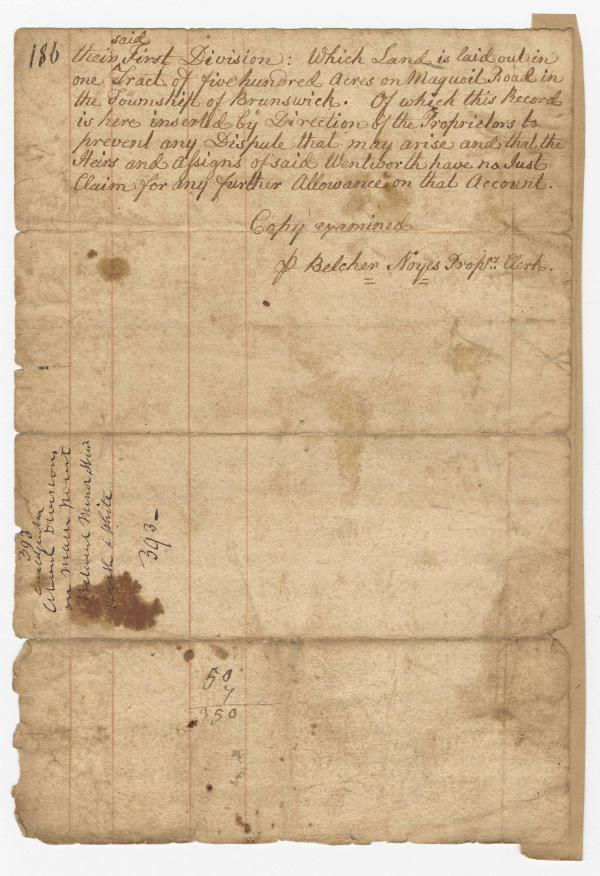 186
said
their First Division: Which Land is laid out in
one Tract of five hundred Acres on Maquoit Road in
the Township of Brunswick. Of which this Record
is here inserted by Direction of the Proprietors to
prevent any Dispute that may arise and that the
Heirs and Assigns of said Wentworth have no Just
Claim for any further Allowance on that Account.
Copy examined
Belcher Noyes Props.r Clerk.
393
About Divisions
on Mair point
Between
& White
393
50
7
350